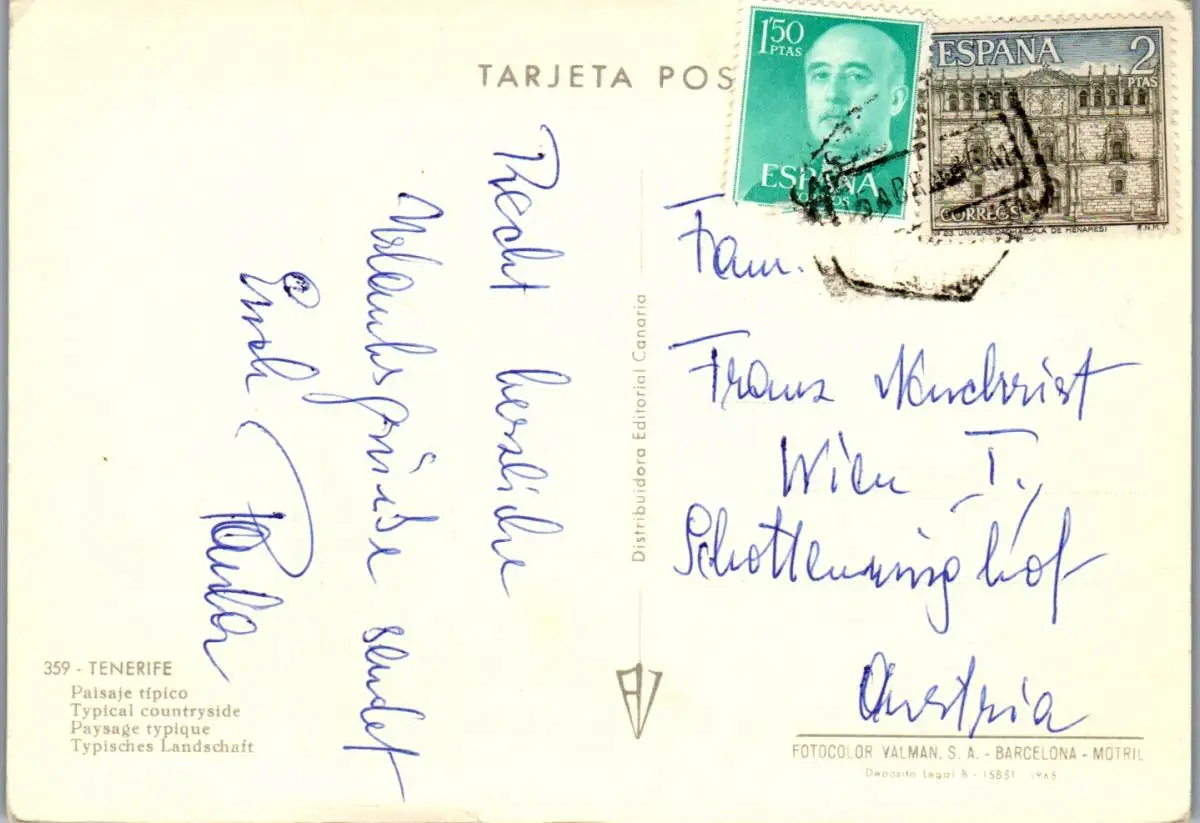 TARJETA POS
1'50
PTAS
ESPAÑA
CORREOS
ESPAÑA 2
PTAS
CORREOS
Nº 23. UNIVERSIDAD (ALCALA DE HENARES)
F.N.M.T.
Recht herzliche
Urlaubsgrüße sendet
Euch
Fam.
Franz
Wien I.,
Schottenringhof
Austria
Distribuidora Editorial Canaria
359 - TENERIFE
Paisaje típico
Typical countryside
Paysage typique
Typisches Landschaft
FOTOCOLOR VALMAN, S. A. - BARCELONA - MOTRIL
Depósito Legal B - 15851 - 1965